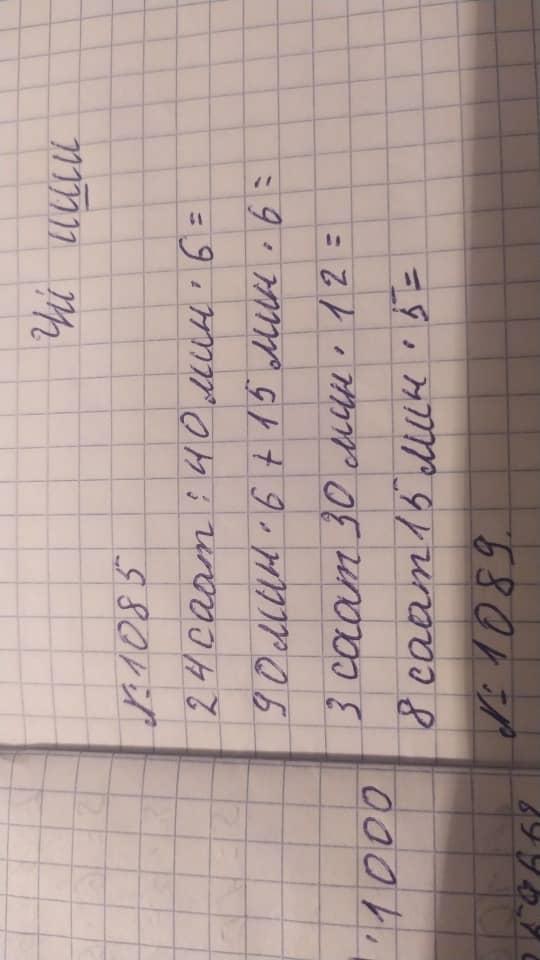 Үй иши
№ 1085
24 саат : 40 мин · 6 =
90 мин · 6 + 15 мин · 6 =
3 саат 30 мин · 12 =
8 саат 15 мин · 5 =
№ 1089.
· 1000